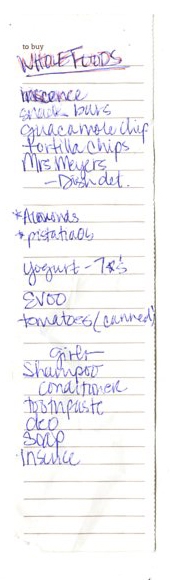 to buy
WHOLE FOODS
Inscence
snack bars
guacamole chip
tortilla chips
Mrs Meyers
- Dish det.
*Almonds
*pistatios
Yogurt - 7
EVOO
tomatoes (canned)
girls
Shampoo
conditioner
toothpaste
deo
Soap